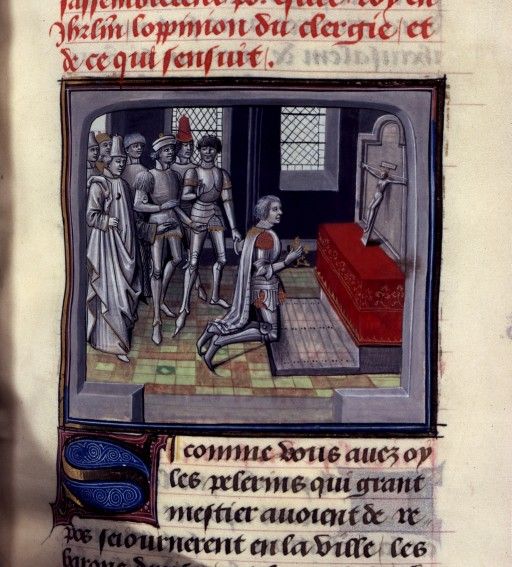 sassemblerent por eslire roy en
Jhrlm loppinion du clergie / et
de ce qui sensuit .
Si comme vous auez oy
les pelerins qui grant
mestier auoient de re
pos seiournerent en la ville / les